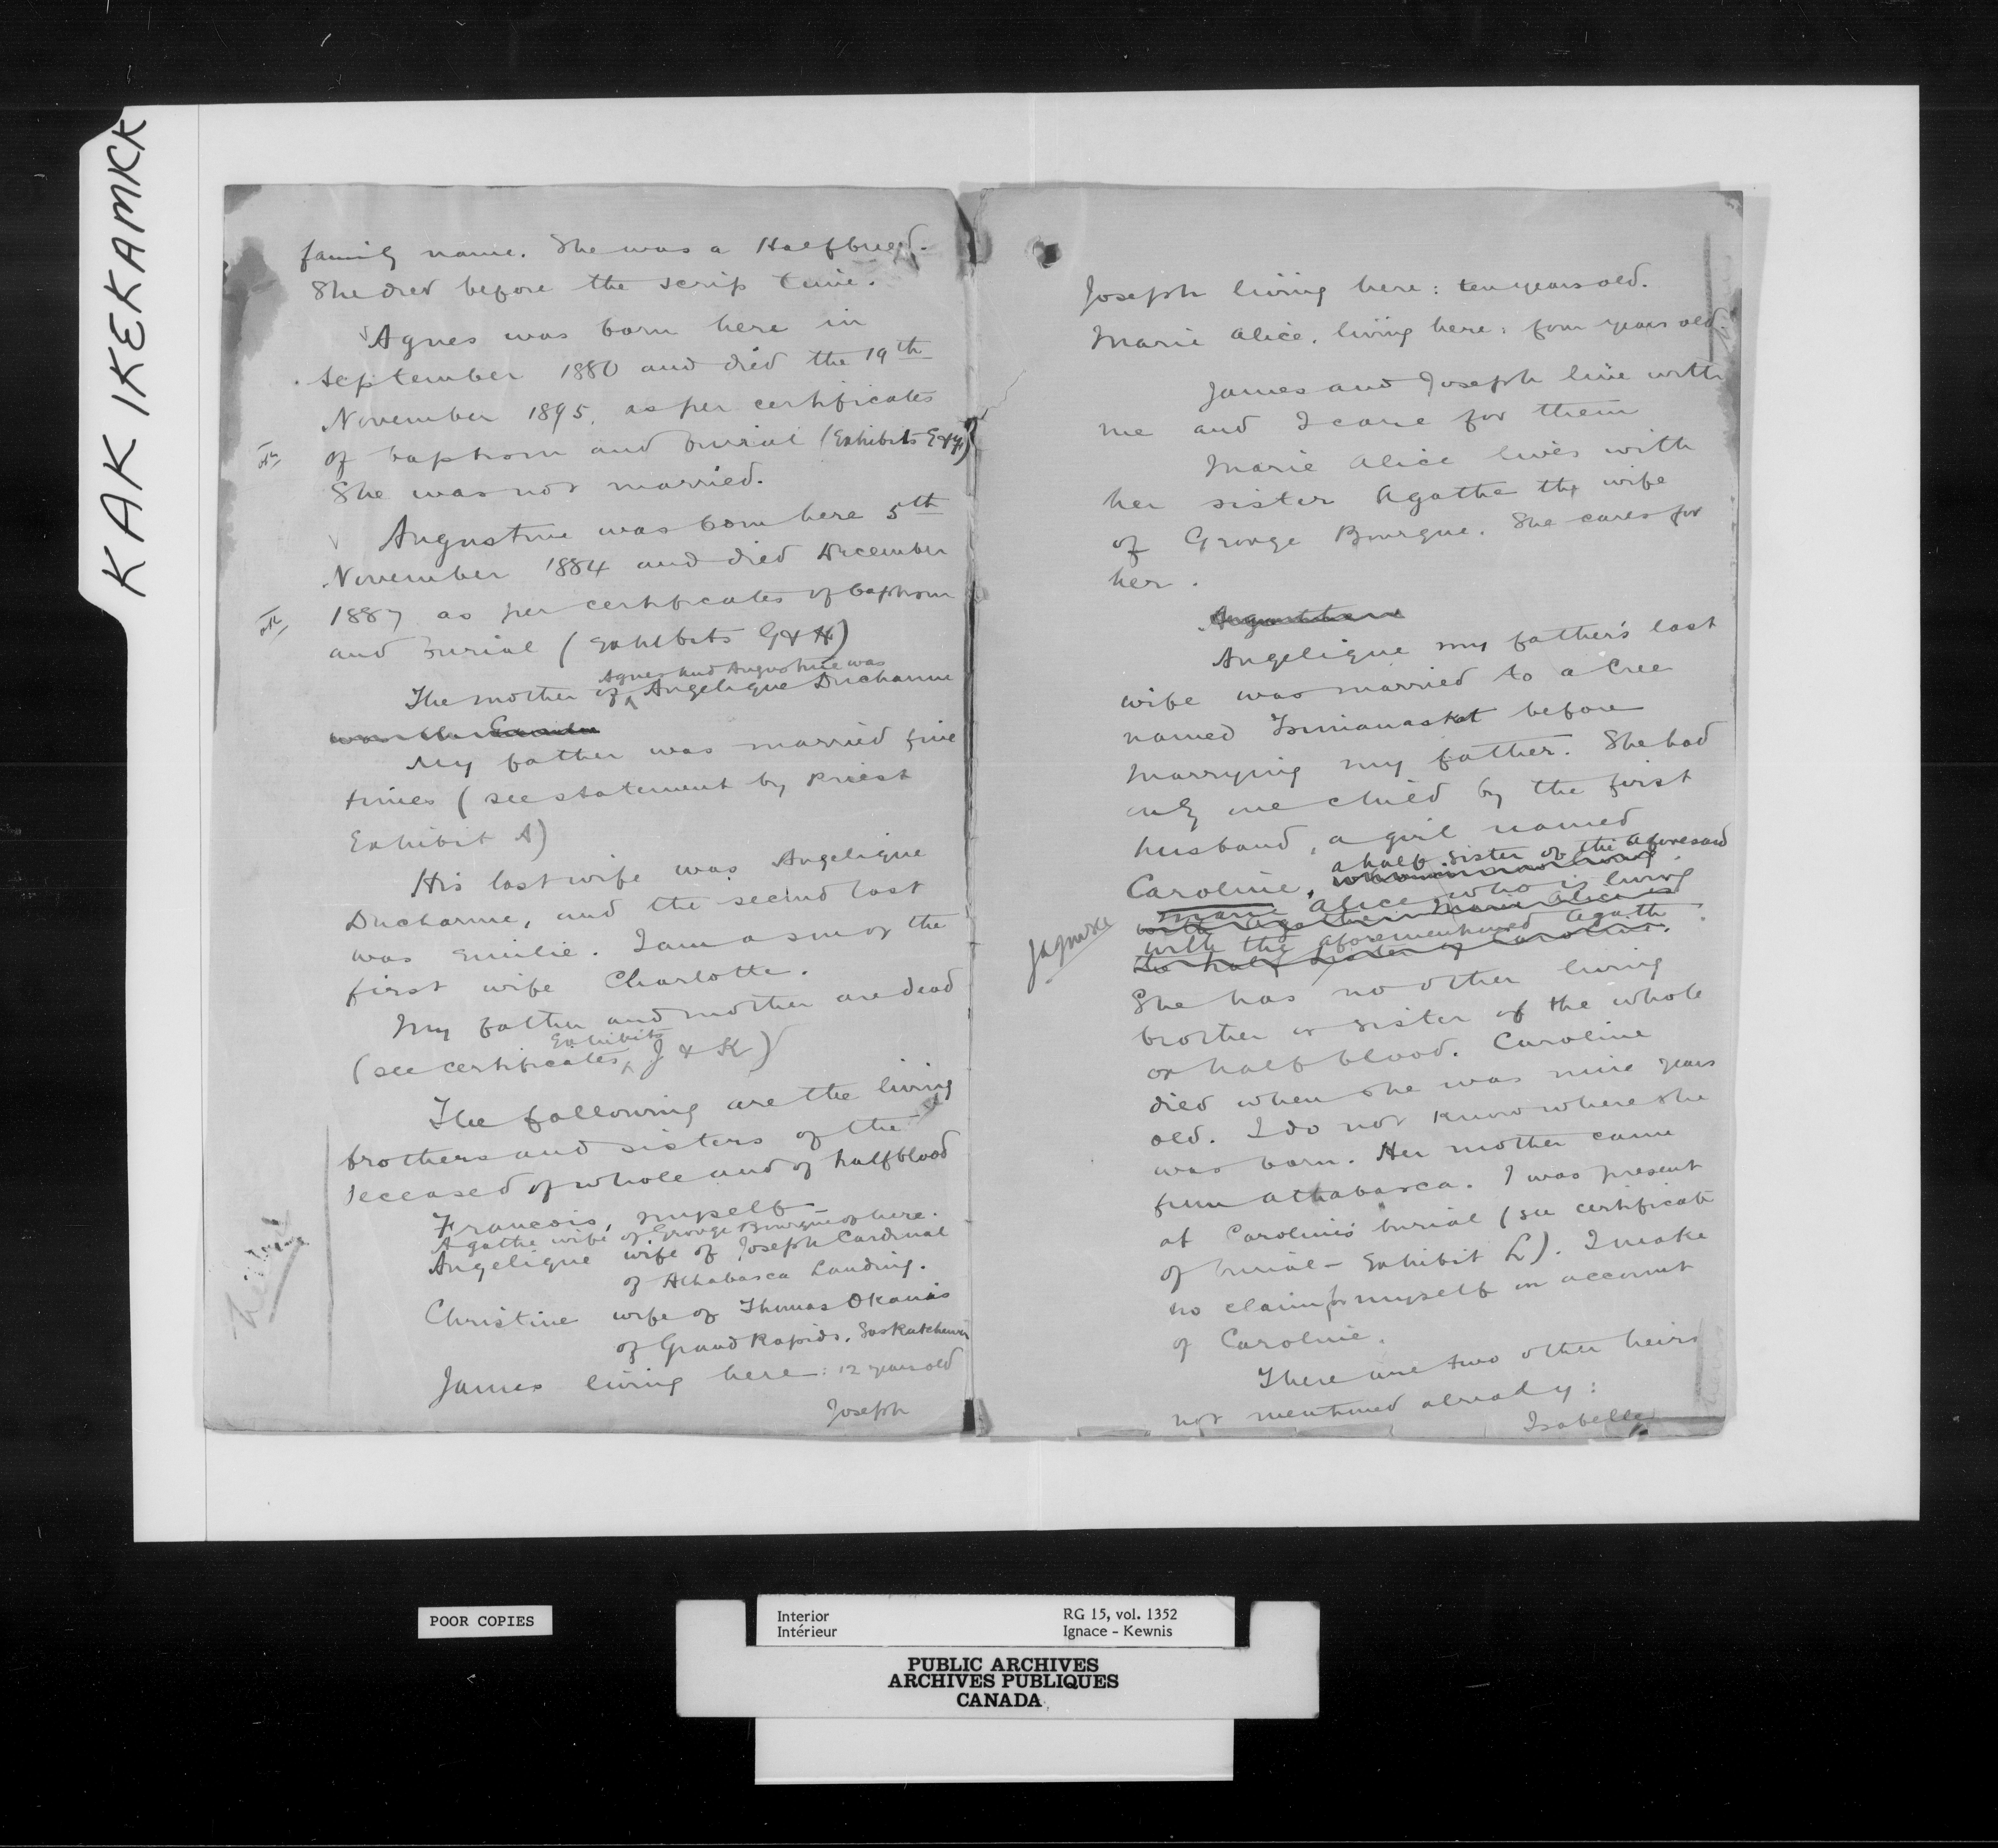 KAK IKEKAMKK
family name. She was a Halfbreed.
She died before the scrip time.
Agnes was born here in
September 1880 and died the 19th
November 1895, as per certificates
of baptism and burial (Exhibits E & F)
She was not married.
Augustine was born here 5th
November 1884 and died December
1887 as per certificates of baptism
and burial (Exhibits G & H)
Agnes and Augustine was
The mother of Angelique Ducharme
was the
My father was married five
times (see statement by Priest
Exhibit A)
His last wife was Angelique
Ducharme, and the second last
was Emilie. I am a son of the
first wife Charlotte.
My father and mother are dead
Exhibits
(see certificates J & K)
The following are the living
brothers and sisters of the
deceased of whole and of halfblood
Francois, myself
Agathe wife of George Bourque of here.
Angelique wife of Joseph Cardinal
of Athabasca Landing.
Christine wife of Thomas Okanas
of Grand Rapids, Saskatchewan
James living here: 12 years old
Joseph
Joseph living here: ten years old.
Marie Alice, living here: four years old
James and Joseph live with
me and I care for them
Marie Alice lives with
her sister Agathe the wife
of George Bourque. She cares for
her.
Angelique my father's last
wife was married to a Cree
named before
marrying my father. She had
only one child by the first
husband, a girl named
a half sister of the aforesaid
Caroline,
Marie Alice who is living
with Agathe. Marie Alice is
with the aforementioned Agathe
the half sister of Caroline.
She has no other living
brother or sister of the whole
or halfblood. Caroline
died when she was nine years
old. I do not know where she
was born. Her mother came
from Athabasca. I was present
at Caroline's burial (see certificate
of burial - Exhibit L). I make
no claim for myself on account
of Caroline.
There are two other heirs
not mentioned already:
Isabelle
POOR COPIES
Interior
Intérieur
RG 15, vol. 1352
Ignace - Kewnis
PUBLIC ARCHIVES
ARCHIVES PUBLIQUES
CANADA